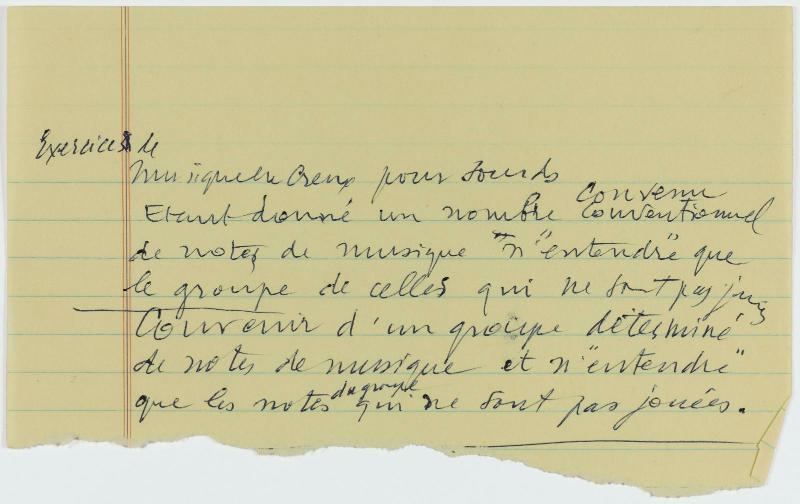 Exercices de
Musique en Creux pour sourds
convenu
Etant donné un nombre conventionnel
de notes de musique n'"entendre" que
le groupe de celles qui ne sont pas jouées
Convenir d'un groupe déterminé
de notes de musique et n'"entendre"
du groupe
que les notes qui ne sont pas jouées.